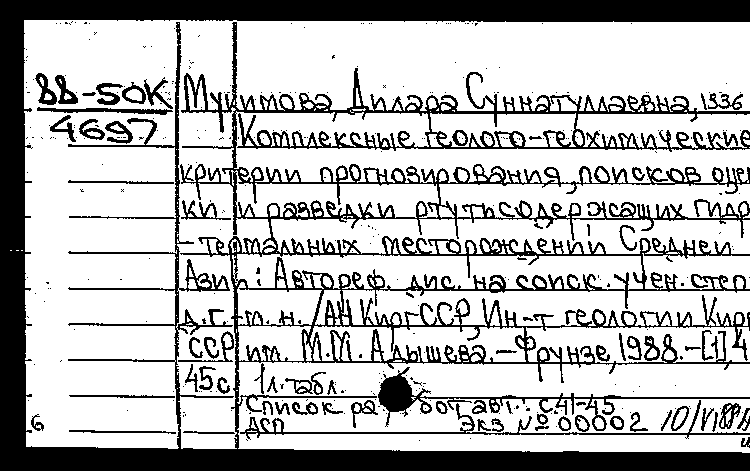 88-50К Мукимова, Дилара Суннатуллаевна, 1936
4697 Комплексные геолого-геохимические
критерии прогнозирования, поисков оцен
ки и разведки ртутьсодержащих гидр
-термальных месторождений Средней
Азии: Автореф. дис. на соиск. учен. степ
д.г.-м.н. / АН КиргССР, Ин-т геологии Кирг
ССР им. М.М. Адышева. - Фрунзе, 1988. - [1], 4
45с 1л. табл.
Список ра бот авт.: с.41-45
6 ДСП Экз № 00002 10/VI 88